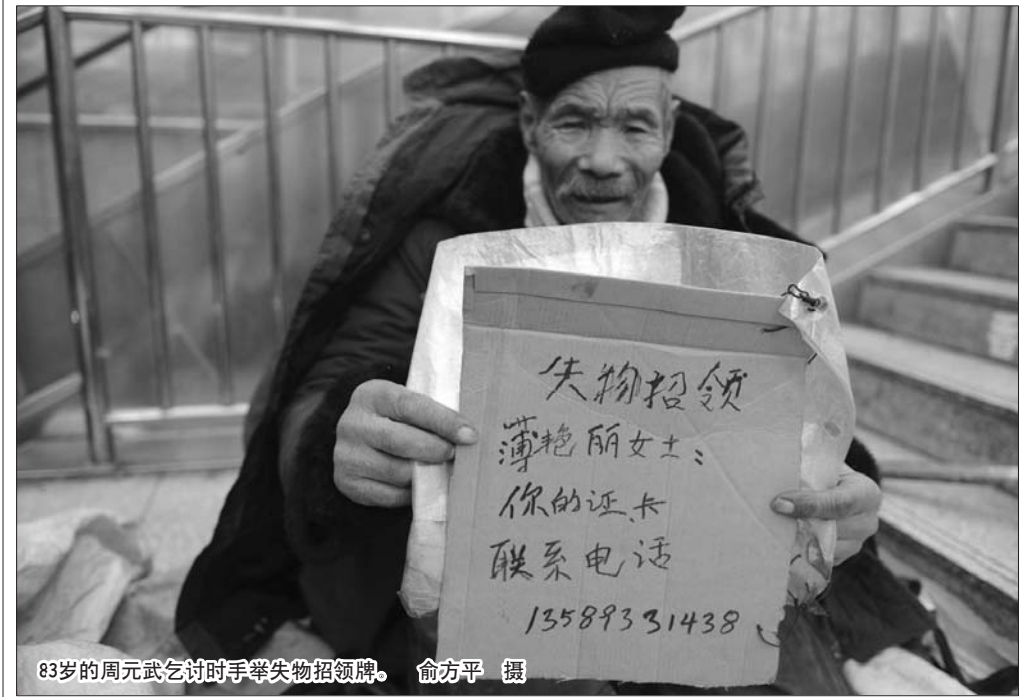 失物招领
薄艳丽女士:
你的证、卡
联系电话
13589331438
83岁的周元武乞讨时手举失物招领牌。 俞方平 摄